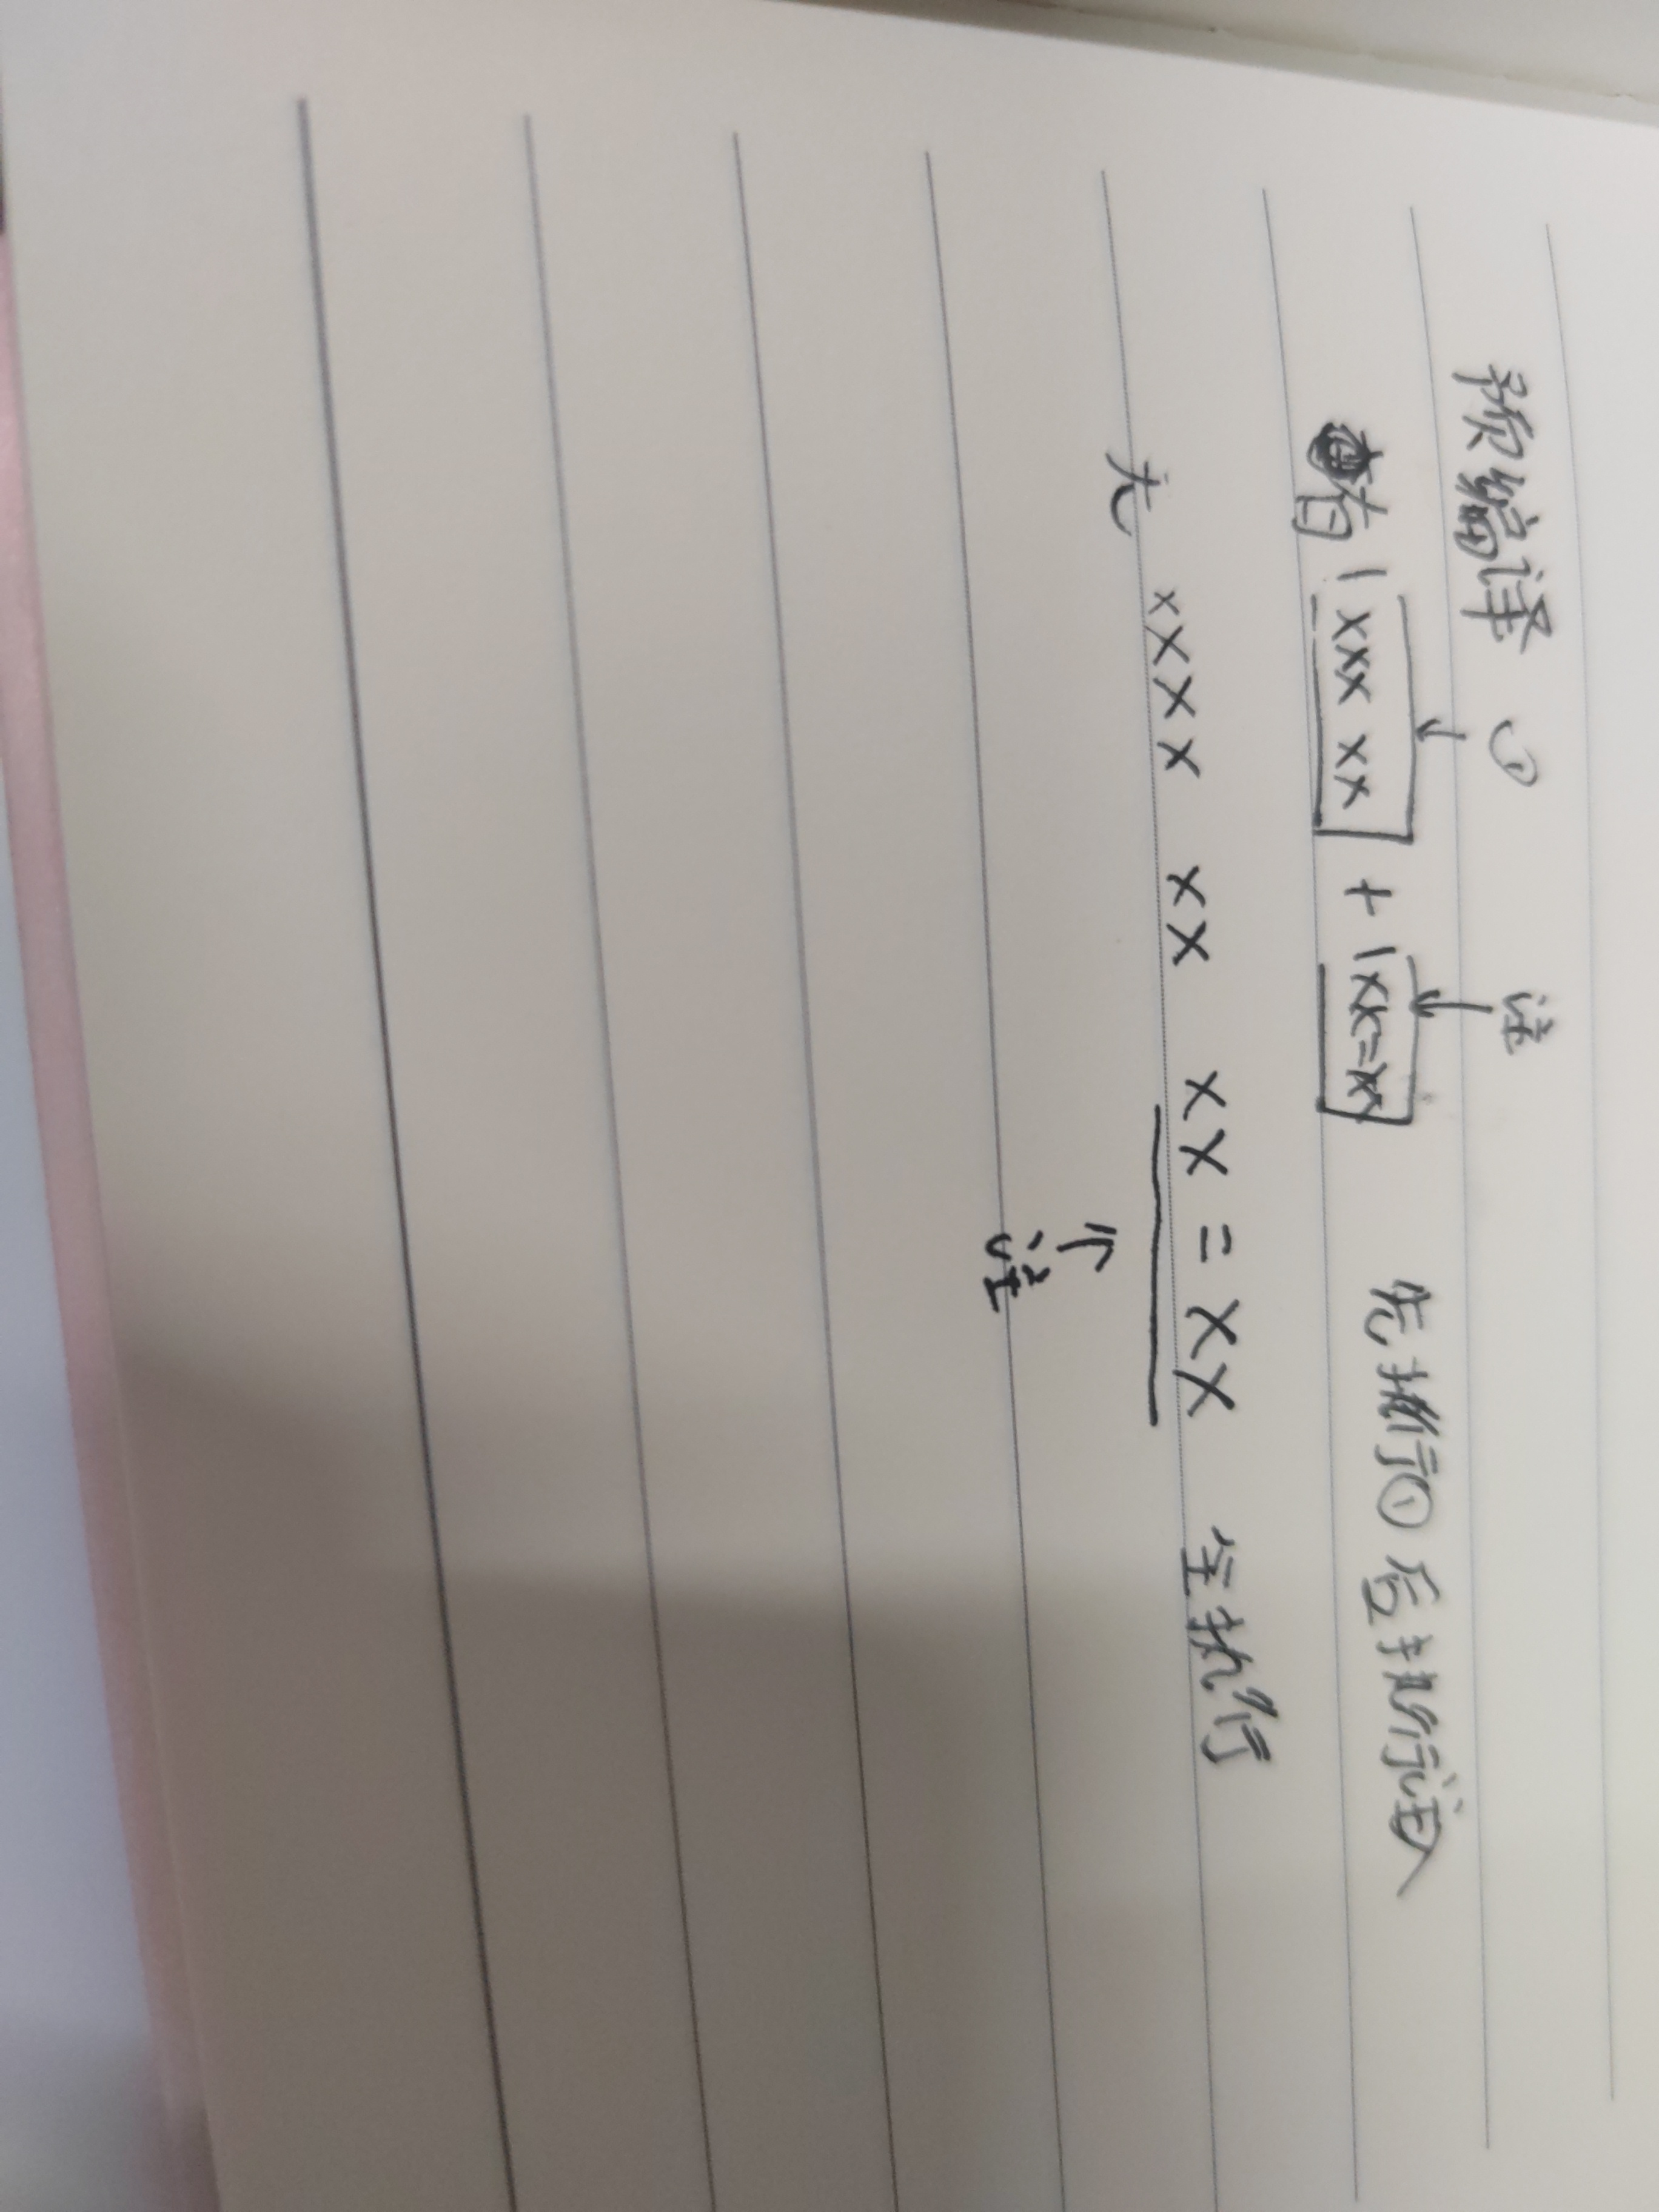 预编译 ① 注
有 | xxx xx | + | xx=xx | 先执行① 后执行注入
无 xxxx xx xx = xx 全执行
注